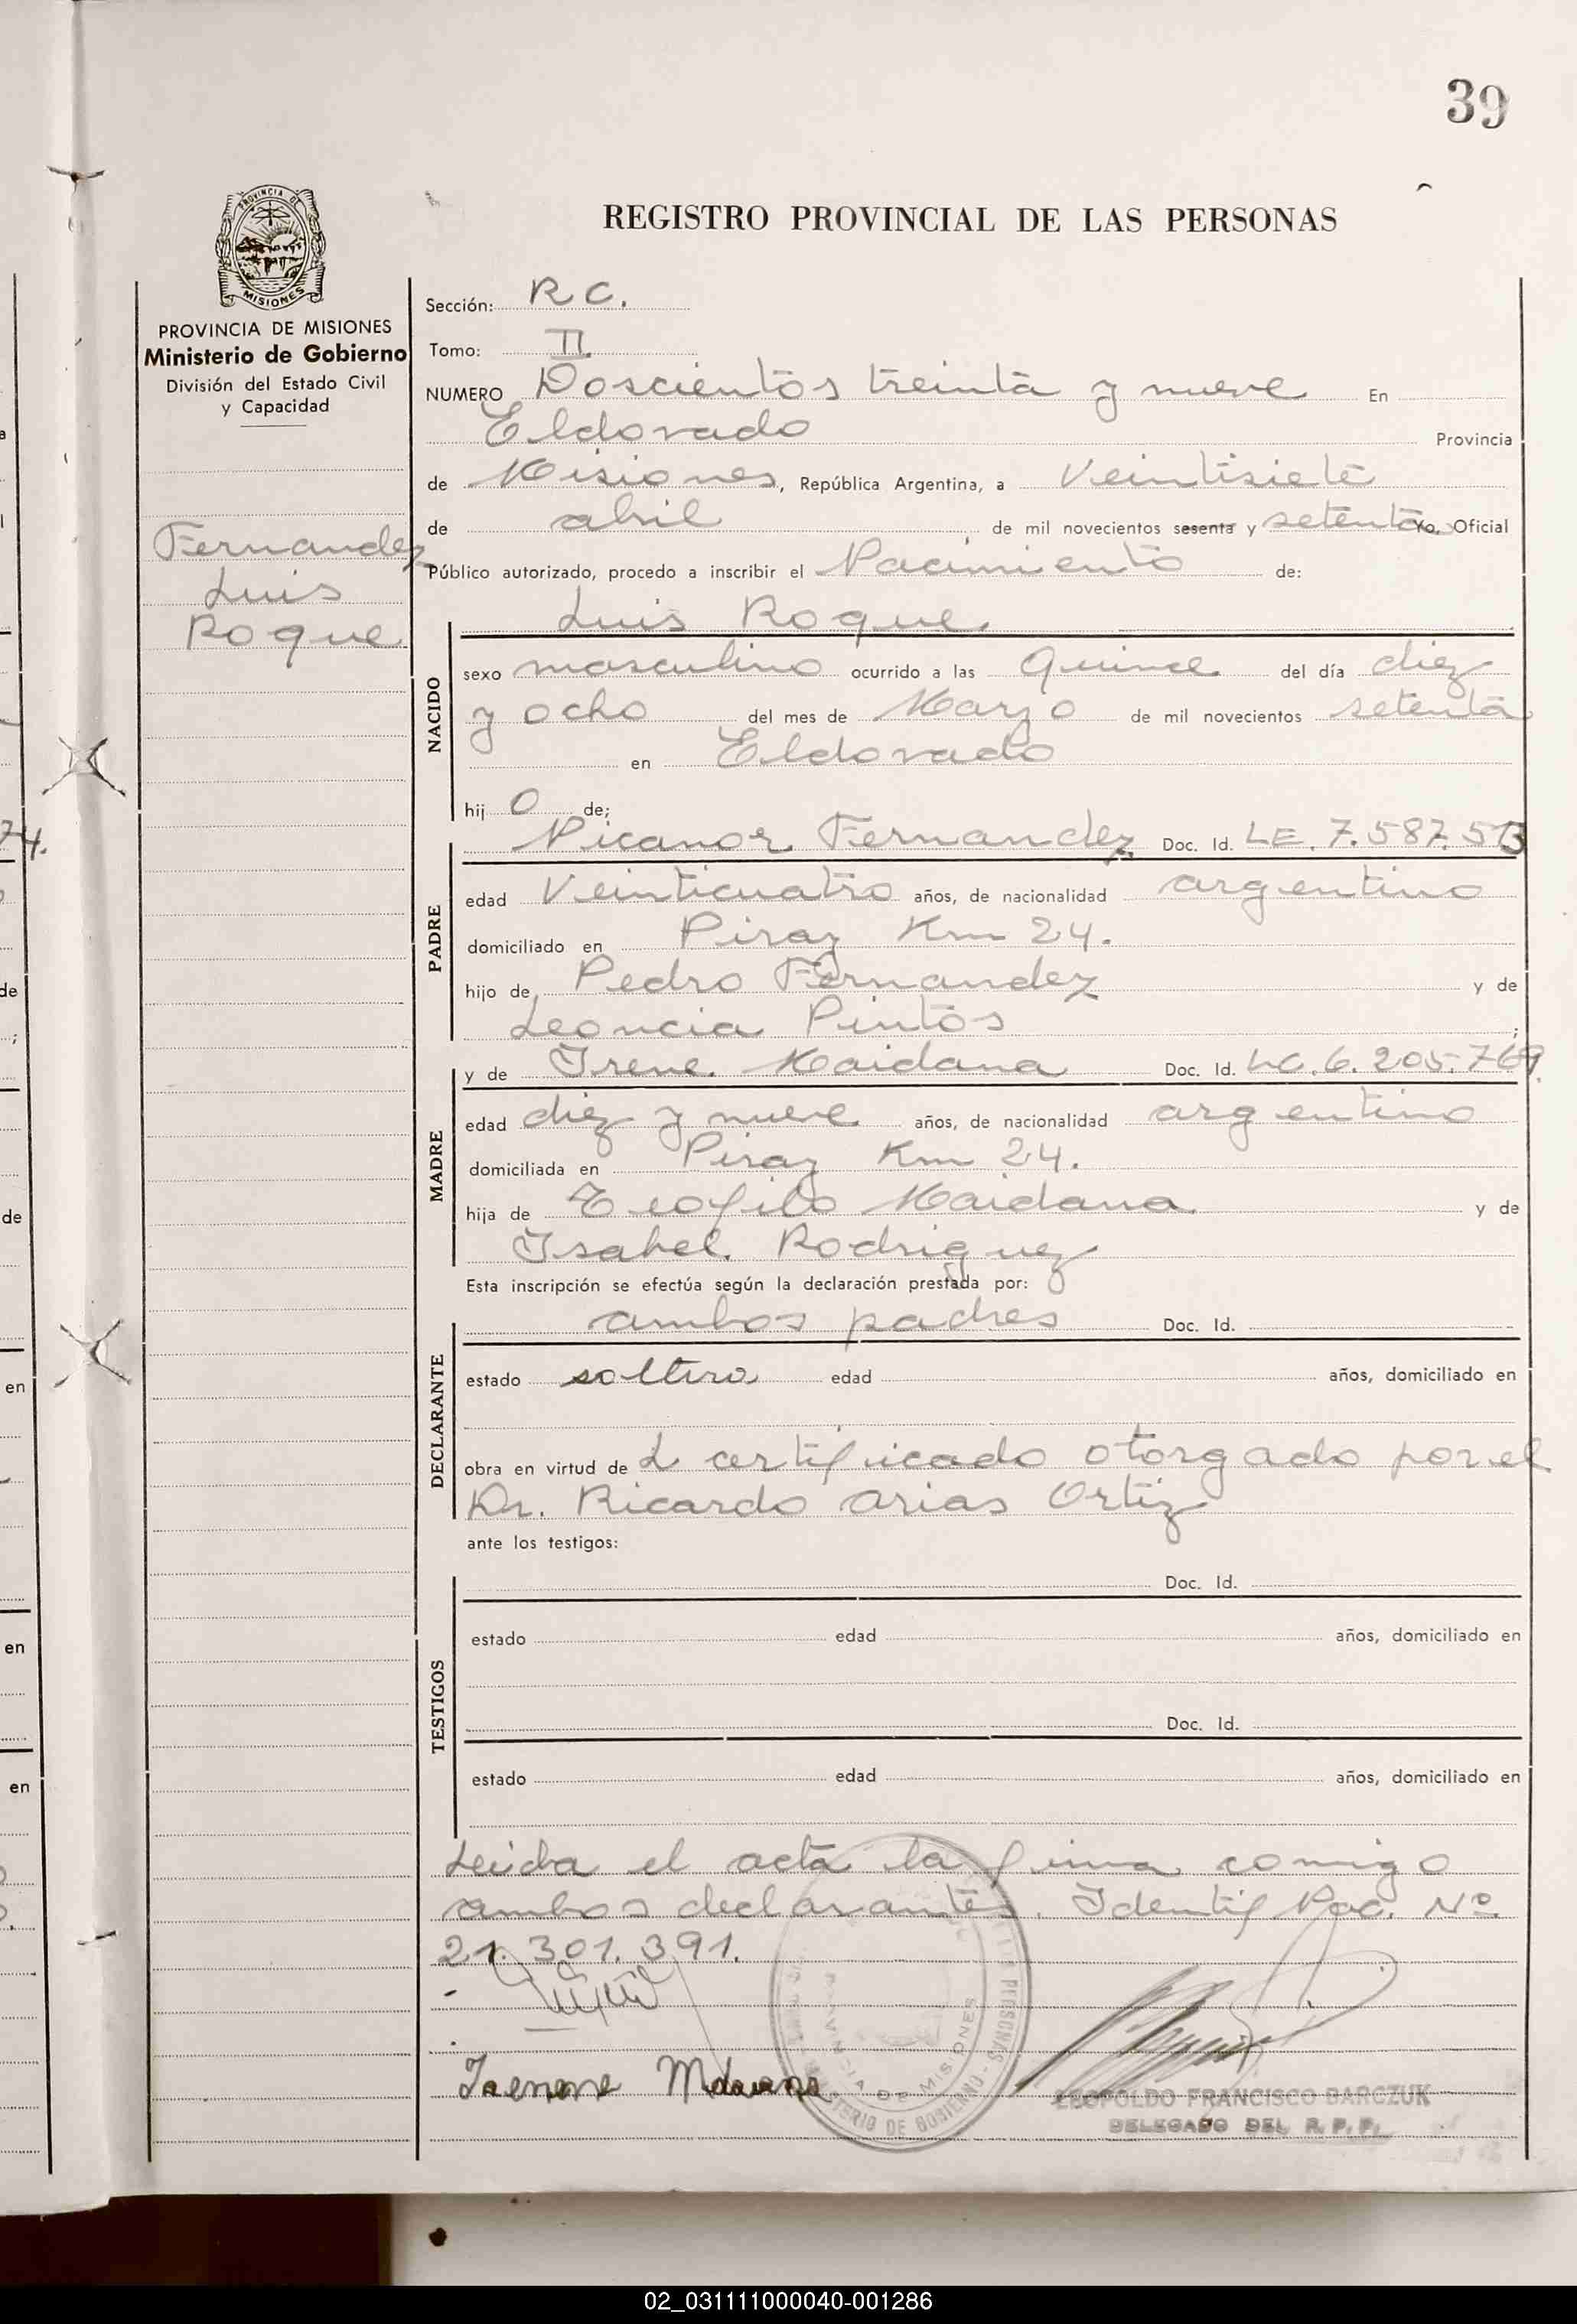 39
PROVINCIA DE
MISIONES
REGISTRO PROVINCIAL DE LAS PERSONAS
PROVINCIA DE MISIONES
Ministerio de Gobierno
División del Estado Civil
y Capacidad
Fernandez
Luis
Roque
Sección: R C.
Tomo: II
NUMERO Doscientos treinta y nueve En
Eldorado Provincia
de Misiones, República Argentina, a Veintisiete
de abril de mil novecientos sesenta y setenta Yo. Oficial
Público autorizado, procedo a inscribir el Nacimiento de:
Luis Roque.
NACIDO
sexo masculino ocurrido a las Quince del día diez
y ocho del mes de Marzo de mil novecientos setenta
en Eldorado
hij o de;
PADRE
Nicanor Fernandez. Doc. Id. LE. 7.587.513
edad Veinticuatro años, de nacionalidad argentino
domiciliado en Piray Km 24.
hijo de Pedro Fernandez y de
Leoncia Pintos ;
MADRE
y de Irene. Maidana Doc. Id. LC. 6.205.769.
edad diez y nueve años, de nacionalidad argentino
domiciliada en Piray Km 24.
hija de Teofilo Maidana y de
Isabel. Rodriguez
Esta inscripción se efectúa según la declaración prestada por:
DECLARANTE
ambos padres Doc. Id.
estado soltero edad años, domiciliado en
obra en virtud de L certificado otorgado por el
Dr. Ricardo Arias Ortiz
ante los testigos:
TESTIGOS
Doc. Id.
estado edad años, domiciliado en
Doc. Id.
estado edad años, domiciliado en
Leida el acta la firma comigo
ambos declarantes. Identif Nac. Nº
21. 301. 391.
PERSONAS
PROVINCIA DE MISIONES
MINISTERIO DE GOBIERNO
LEOPOLDO FRANCISCO BARCZUK
DELEGADO DEL R.P.P.
74.
de
de
en
en
en
02_031111000040-001286